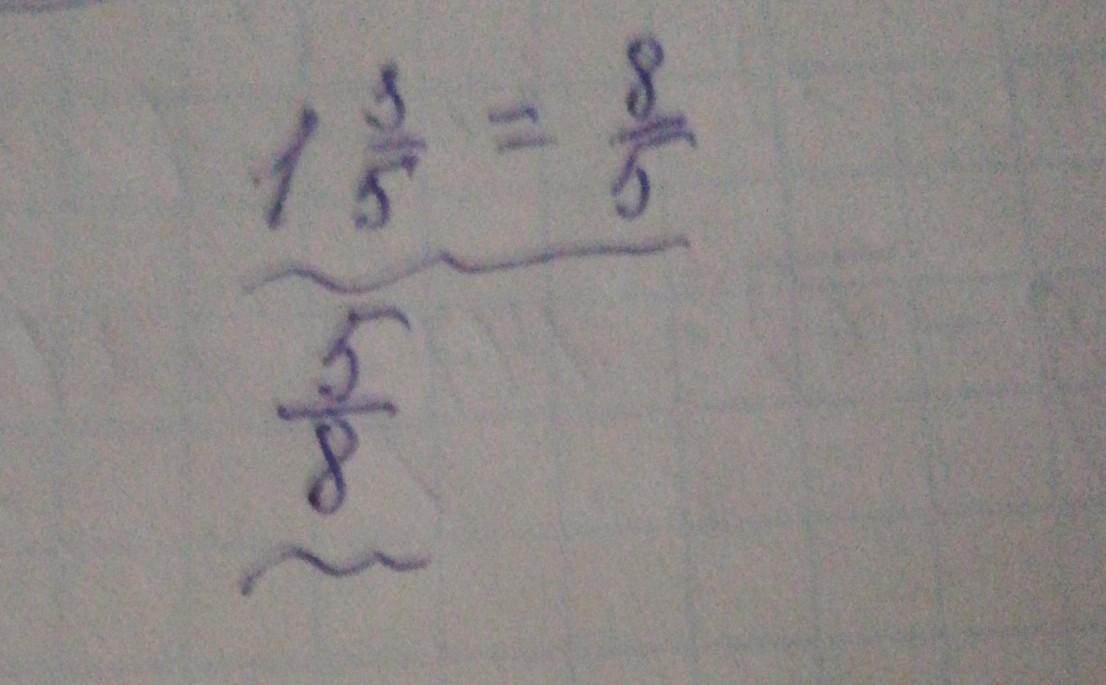 1 3/5 = 8/5
5/8